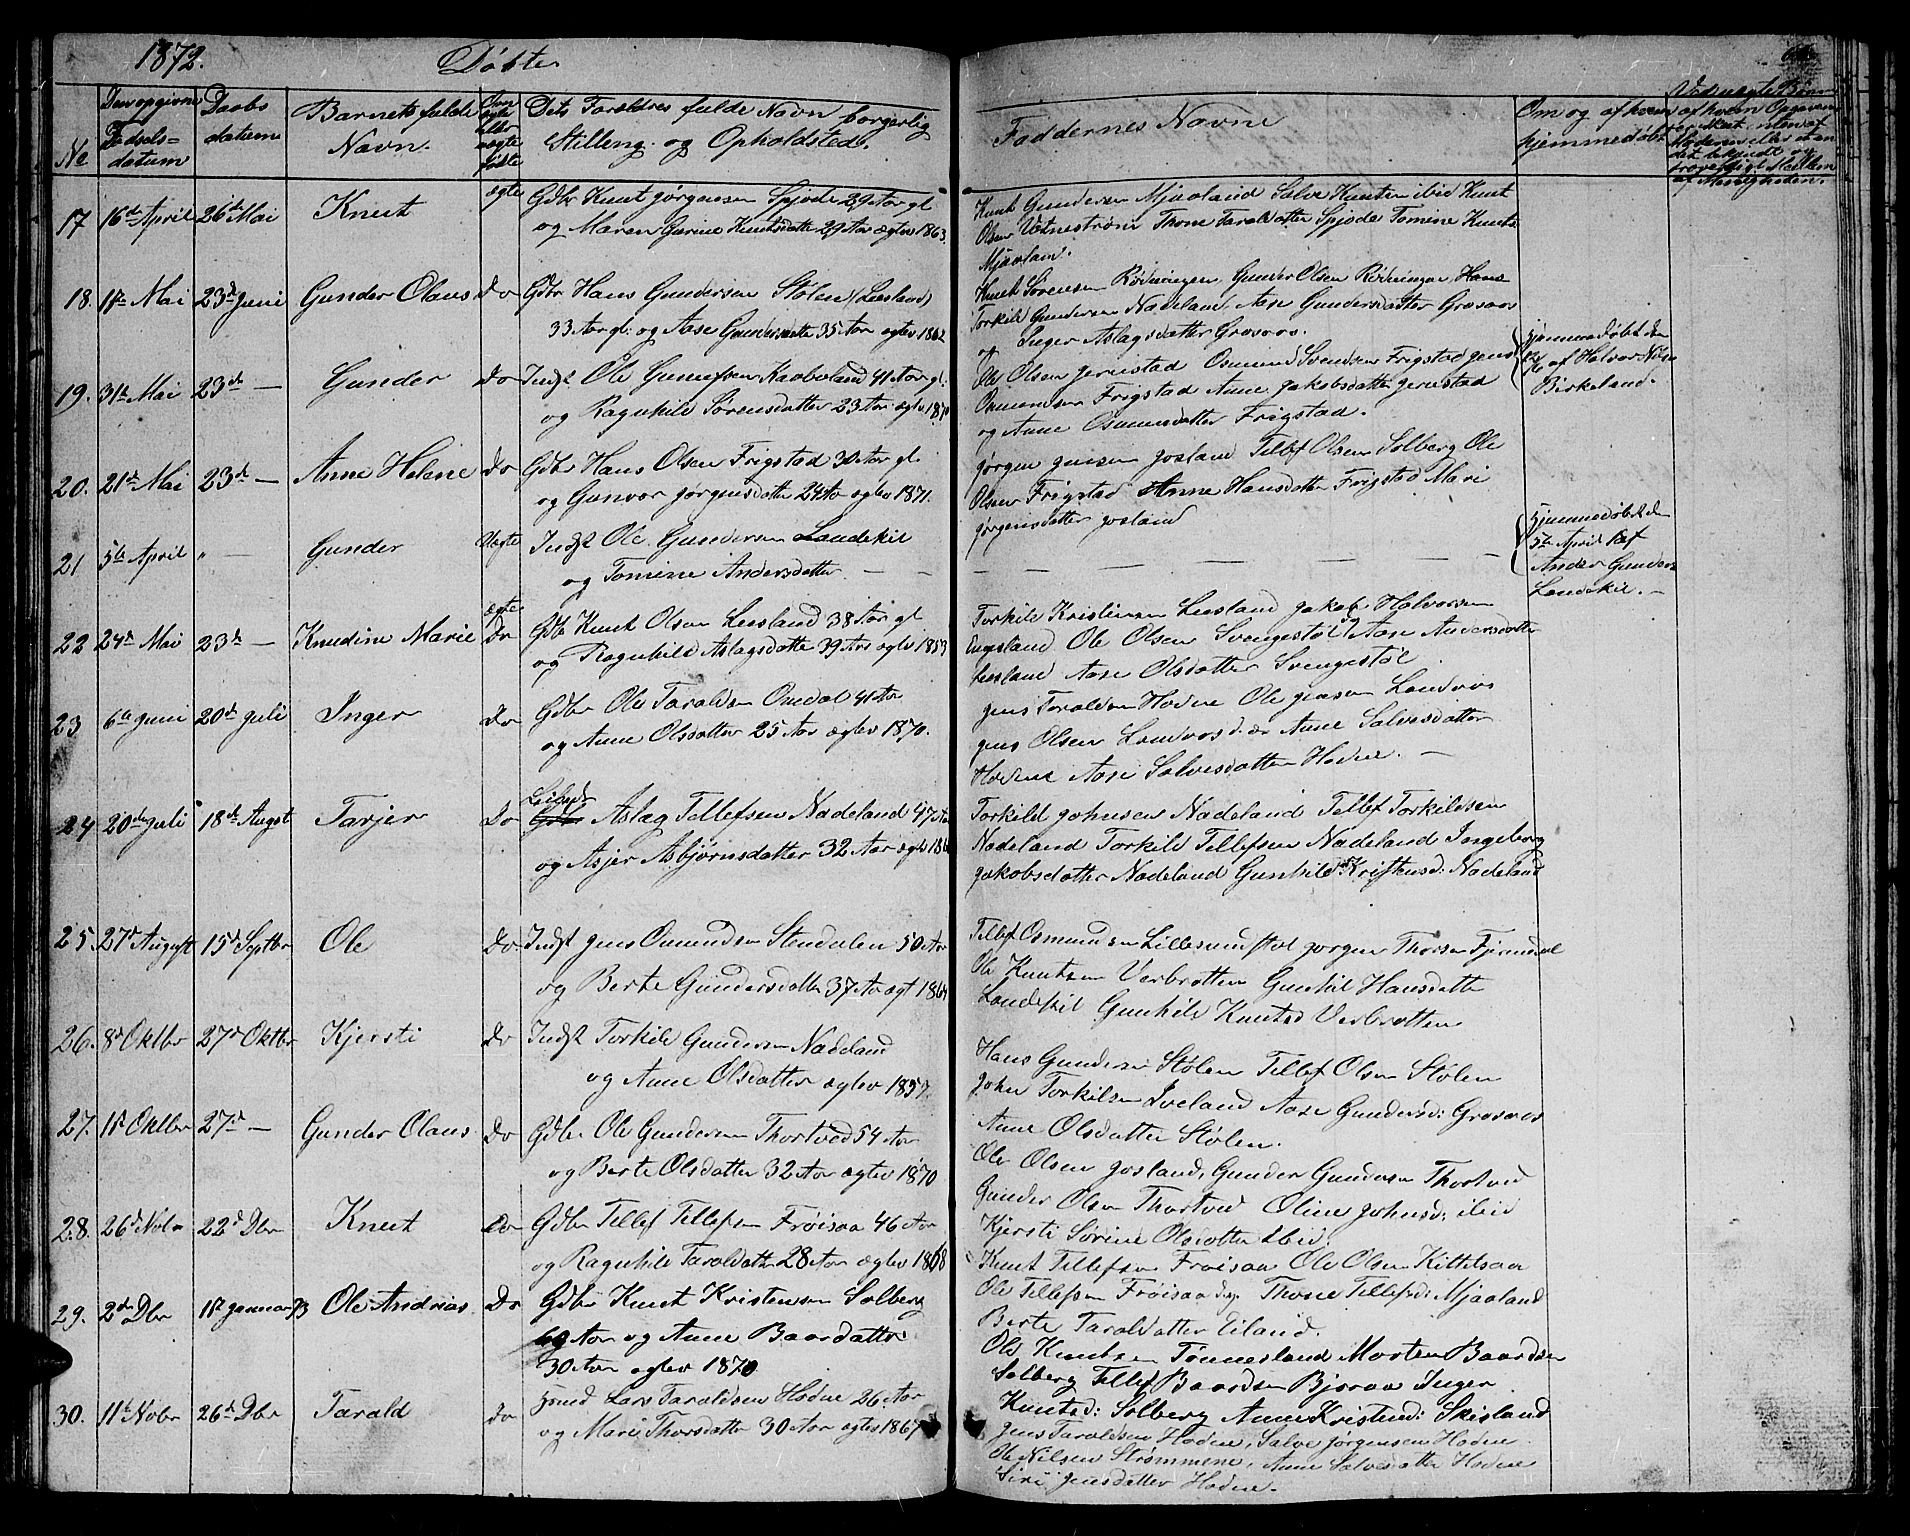 1872. Døbte
No
Den opgivne Fødsels-datum
Daabs datum
Barnets fulde Navn.
Om ægte eller uægte fødte
Dets Forældres fulde Navn borgerlig Stilling og Opholdsted.
Faddernes Navne
Om og af hvem hjemmedøbt
17 16de April 26de Mai Knut ægte Gdbr Knut Jørgensen Spjode 29 Aar gl
og Maren Gurine Knutsdatter 29 Aar ægtev 1863.
Knut Gundersen Mjaaland Salve Knutsen ibid Knut
Olsen Vetnestrøm Thone Taraldsdatter Spjode Tomine Knuts
Mjaaland.
18. 17de Mai 23de Juni Gunder Olaus Do Gdbr Hans Gundersen Stølen (Leesland)
33 Aar gl. og Aase Gundersdatter 35 Aar ægtev 1862
Knut Sørensen Rødningen Gunder Olsen Rødningen Hans
Torkild Gundersen Nadeland Aase Gundersdatter Grosaas
og Inger Aslagsdatter Grosaas.
19. 31te Mai 23de — Gunder Do Indst Ole Gunufsen Kaabuland 41 Aar gl.
og Ragnhild Sørensdatter 23 Aar ægtev 1870
Ole Olsen Jerustad Osmund Svendsen Frigstad Jens
Osmundsen Frigstad Anne Jakobsdatter Jerustad
og Anne Osmundsdatter Frigstad.
Hjemmedøbt den
af Halvor Nilsen
Birkeland.
20. 21de Mai 23de — Anne Helene Do Gdbr Hans Olsen Frigstad 30 Aar gl.
og Gunvor Jørgensdatter 24 Aar ægtev 1871.
Jørgen Jensen Josland Tellef Olsen Solberg Ole
Olsen Frigstad Anne Hansdatter Frigstad Mari
Jørgensdatter Josland
21 5te April " — Gunder Uægte Indst Ole Gundersen Landskil
og Tomine Andersdatter — —
— — — — — —
Hjemmedøbt den
5te April af
Ander Gunders
Landskil. —
22 24de Mai 23de — Knudine Marie ægte Do Gdbr Knut Olsen Leesland 38 Aar gl
og Ragnhild Aslagsdatter 39 Aar ægtev 1853
Torkild Kristensen Leesland Jakob Halvorsen
Engesland Ole Olsen Svengestøl Aase Andersdatter
Leesland Aase Olsdatter Svengestøl.
23 6te Juni 20de Juli Inger Do Gdbr Ole Taraldsen Omdal 41 Aar
og Anne Olsdatter 25 Aar ægtev 1870.
Jens Taraldsen Hodne Ole Jensen Landaas
Jens Olsen Landaas Anne Salvesdatter
Hodne Aase Salvesdatter Hodne. —
24 20de Juli 18de August Tarjer Do Aslag Tellefsen Nadeland 47 Aar
og Asjer Asbjørnsdatter 32 Aar ægtev
Torkild Johnsen Nadeland Tellef Torkildsen
Nadeland Torkild Tellefsen Nadeland Ingeborg
Jakobsdatter Nadeland Gunhild Kristensd: Nadeland
25. 27de August 15de Septbr Ole Do Indst Jens Omundsen Stendalen 50 Aar
og Berte Gundersdatter 37 Aar ægt 1864
Tellef Osmundsen Lillesundstøl Jørgen Thorsen Fjermedal
Ole Knutsen Verbrotten Gunhil Hansdatter
Landskil Gunhild Knutsd Verbrotten
26. 8de Oktbr 27de Oktbr Kjersti Do Indst Torkild Gundersen Nadeland
og Anne Olsdatter ægtev 1857.
Hans Gundersen Stølen Tellef Olsen Stølen
John Torkilsen Iveland Aase Gundersd: Grosaas
Anne Olsdatter Stølen.
27. 1ste Oktbr 27de — Gunder Olaus. Do Gdbr Ole Gundersen Thortved 54 Aar
og Berte Olsdatter 32 Aar ægtev 1870
Ole Olsen Josland, Gunder Gundersen Thortved
Gunder Olsen Thortved Oline Johnsd: ibid
Kjersti Sørine Olsdatter ibid,
28. 26de Novbr 22de Dbr Knut Do Gdbr Tellef Tellefsen Frøisaa 46 Aar
og Ragnhild Taraldsdatter 28 Aar ægtev 1868
Knut Tellefsen Frøisaa Ole Olsen Kittelsaa
Ole Tellefsen Frøisaa og Thone Tellefsd: Mjaaland
Berte Taraldsdatter Eiland.
29. 2den Dbr 1ste Januar 73 Ole Andreas. Do Gdbr Knut Kristensen Solberg
69 Aar og Anne Baardsdatter
30 Aar ægtev 1870
Ole Knutsen Tønnesland Morten Baardsen
Solberg Tellef Baardsen Bjoraa Inger
Knutsd: Solberg Anne Kristensd: Skisland
30. 11te Nobr 26de Dbr Tarald Do Lars Taraldsen Hodne 26 Aar
og Mari Thorsdatter 30 Aar ægtev 1867
Jens Taraldsen Hodne, Salve Jørgensen Hodne
Ole Nilsen Strømmene, Anne Salvesdatter Hodne
Siri Jensdatter Hodne.